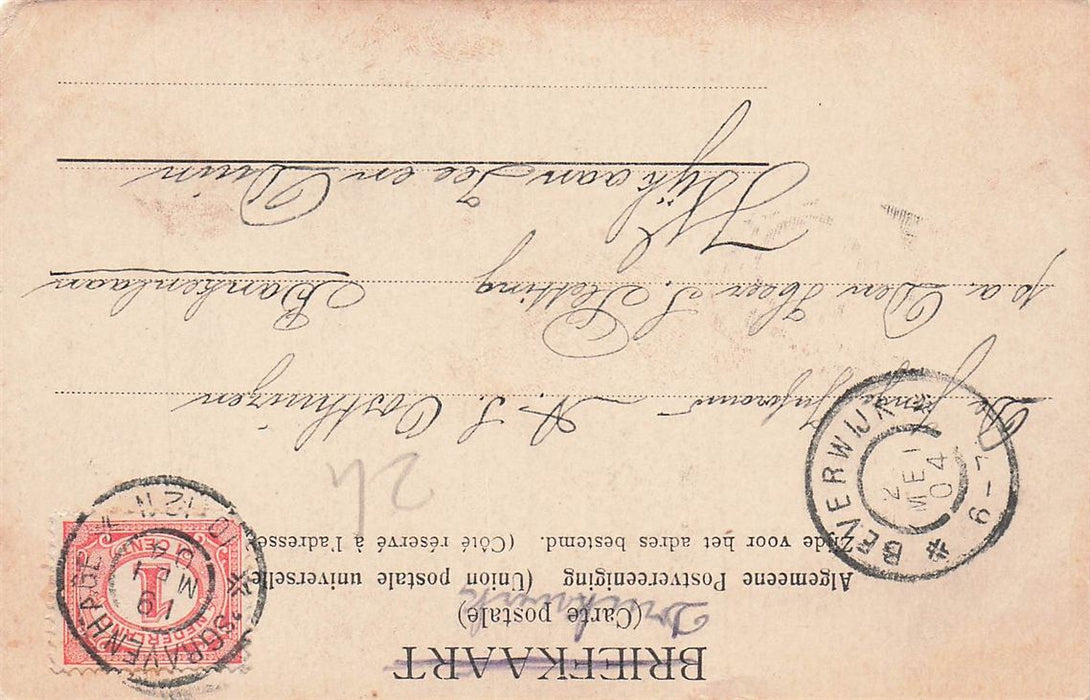 BRIEFKAART
(Carte postale)
Drukwerk
Algemeene Postvereeniging (Union postale universelle)
Zijde voor het adres bestemd. (Côté réservé à l'adresse)
24
De Jonge Jufvrouw A. S. Oosthuizen
p a Den Heer S. Slotting Bankenlaan
Wijk aan Zee en Duin
BEVERWIJK
2 MEI 04
6-7
'SGRAVENHAGE
10-12 V
NEDERLAND
1
CENT